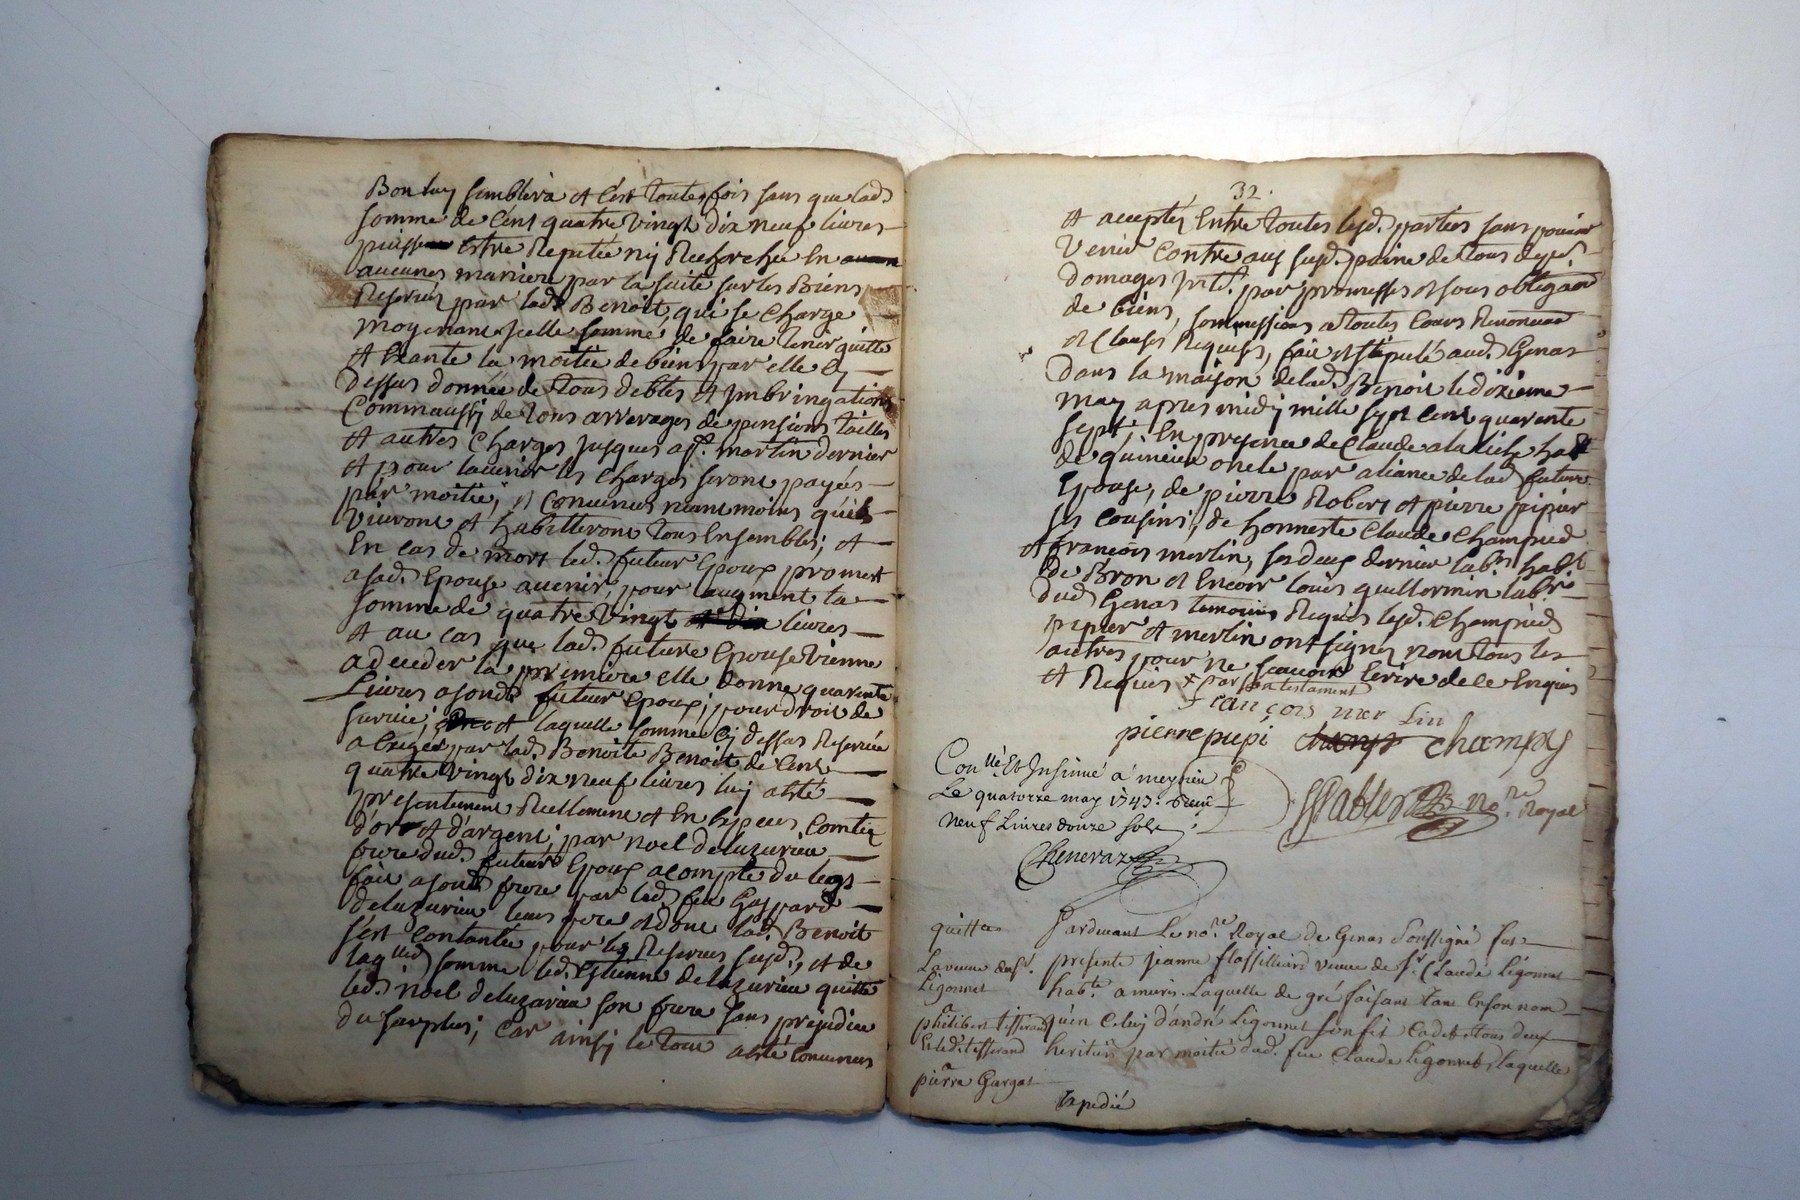 Bon luy semblera et c'est toutes fois sans que lad.
somme de cent quatre vingt dix neuf livres
puisse estre Repetée ny Recherchée En
aucunes maniere par la suite sur les Biens
Reservés par lad. Benoit, qui se charge
moyenant jcelle somme de faire tenir quitte
et Exante la moitié de biens par elle cy
dessus donnée de tous debtes et jmbringations
Commaussy de tous arrerages de pensions tailles
et autres charges jusques a st. martin dernier
et pour lavenir les charges seront payées
par moitié, convenus neantmoins quils
vivront et habitteront tous Ensembles; et
En cas de mort led. futeur Epoux promest
a sad. Epouse avenir, pour augment la
somme de quatre vingt livres
et au cas que lad. future Epouse vienne
a deceder la premiere elle donne quarente
Livres a sond. futeur Epoux; pour droit de
survie; et laquelle somme cy dessus Reservée
a Exiger par lad. Benoite Benoit de Cent
quatre vingt dix neuf livres luy a esté
presentement Reellement et En Especes Comtée
d'or et d'argent; par noel deluzurieu
frere dud. futeur Epoux a compte du legs
fait a sond. frere par led. feu Gaspard
deluzurieu leurs pere et dont lad. Benoit
s'est contantée pour les Reserves susd., et de
laqlle somme led. Estienne deluzurieu quitte
led. noel deluzurieu son frere sans prejudice
du surplus; Car ainsy le tout a esté Convenus
32.
et acceptés Entre toutes lesd. parties sans pouvoir
venir contre aux susd. paine de tous desp.
domages jnts. par promesses et sous obligaon
de biens, sommissions a toutes Cours Renoneaon
et Clauses Requises, fait et stipulé aud. Genas
dans la maison de lad. Benoit le dixieme
may apres midy mille sept cent quarente
sept; En presence de Claude habt.
de oncle par aliance de lad. future
Epouse, de pierre Robert et pierre pipier
ses cousins; de honneste Claude Champied
et francois merlin, ses deux dernier labrs. habt.
de Bron et Encore louis guillermin labr.
dud. Genas temoins Requis lesd. Champied
pipier et merlin ont signés nom tous les
autres pour ne scavoir Ecrire de ce Enquis
et Requis x par son testament
francois mer Lin
pierre pupi champy
Conllé. Et Jnsinué a meyzieu
Le quatorze may 1747. Receu
neuf Livres douze sols
Cheneraz
no.re Royal
quittce
La veuve du sr.
Ligonnet
a
philibert tisserand
led. tisserand
a
pierre Gargat
Pardevant Le no.re Royal de Genas Soussigné fut
presente jeanne veuve de sr. Claude Ligonnet
habte. a muris. Laquelle de gré faisant tant En son nom
qu'en Celuy d'andré Ligonnet son fils Cadet tous deux
heritiers par moitié dud. feu Claude Ligonnet, laquelle
Expedié